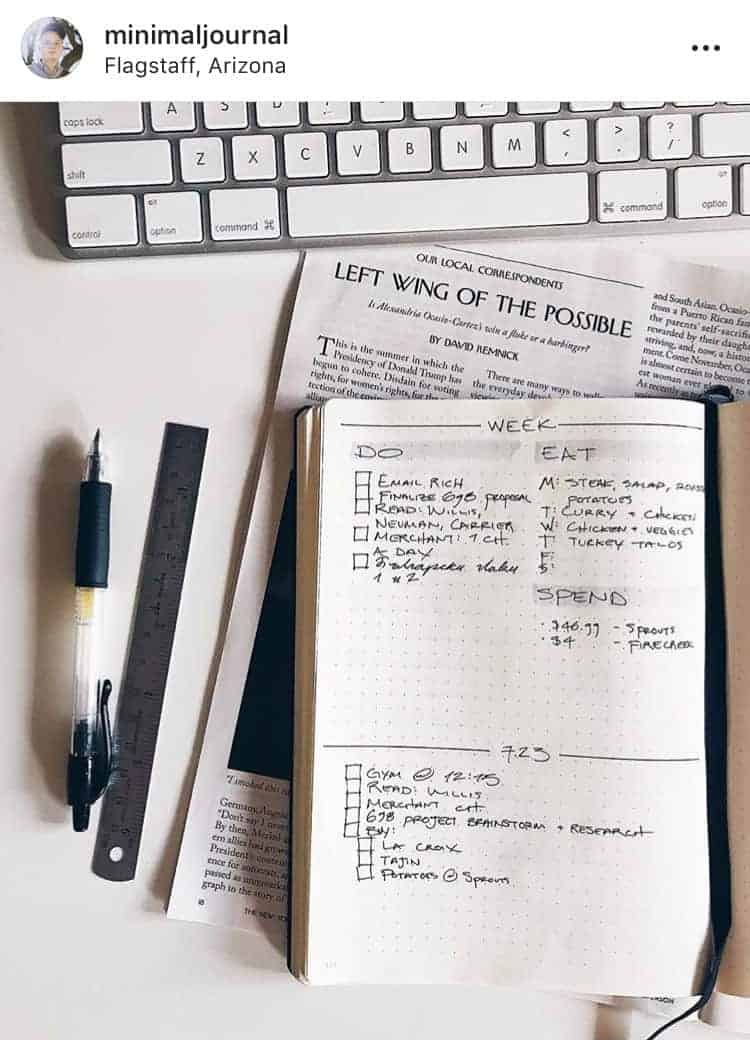 minimaljournal
Flagstaff, Arizona
caps lock A S D
shift Z X C V B N M < , > . ? /
control alt option command ⌘ ⌘ command alt option
OUR LOCAL CORRESPONDENTS
LEFT WING OF THE POSSIBLE
Is Alexandria Ocasio-Cortez's win a fluke or a harbinger?
BY DAVID REMNICK
This is the summer in which the
Presidency of Donald Trump has
begun to cohere. Disdain for voting
rights, for women's rights, for the
There are many ways to
the everyday
and South Asian. Ocasio-
from a Puerto Rican
the parents' self-sacrifi
rewarded by their daugh
striving, and, now, a histor
ment. Come November, Oca
is almost certain to become
est woman ever
As recently
WEEK
DO
EMAIL RICH
FINALIZE 698 PROPOSAL
READ: WILLIS,
NEUMAN, CARRIER
MERCHANT: 1 CH.
A DAY
1 + 2
EAT
M: STEAK, SALAD,
POTATOES
T: CURRY + CHICKEN
W: CHICKEN + VEGGIES
T: TURKEY TACOS
F:
S:
SPEND
· $46.99 - SPROUTS
· $4 - FIRECREEK
7.23
GYM @ 12:15
READ: WILLIS
MERCHANT CH.
698 PROJECT BRAINSTORM + RESEARCH
BUY:
LA CROIX
TAJIN
POTATOES @ SPROUTS
"I smoked this
Germany, Angela
"Don't say I never
By then, Merkel
ern allies had
President's
ence for autocrats,
passed as unremarka
graph in the story of
THE NEW